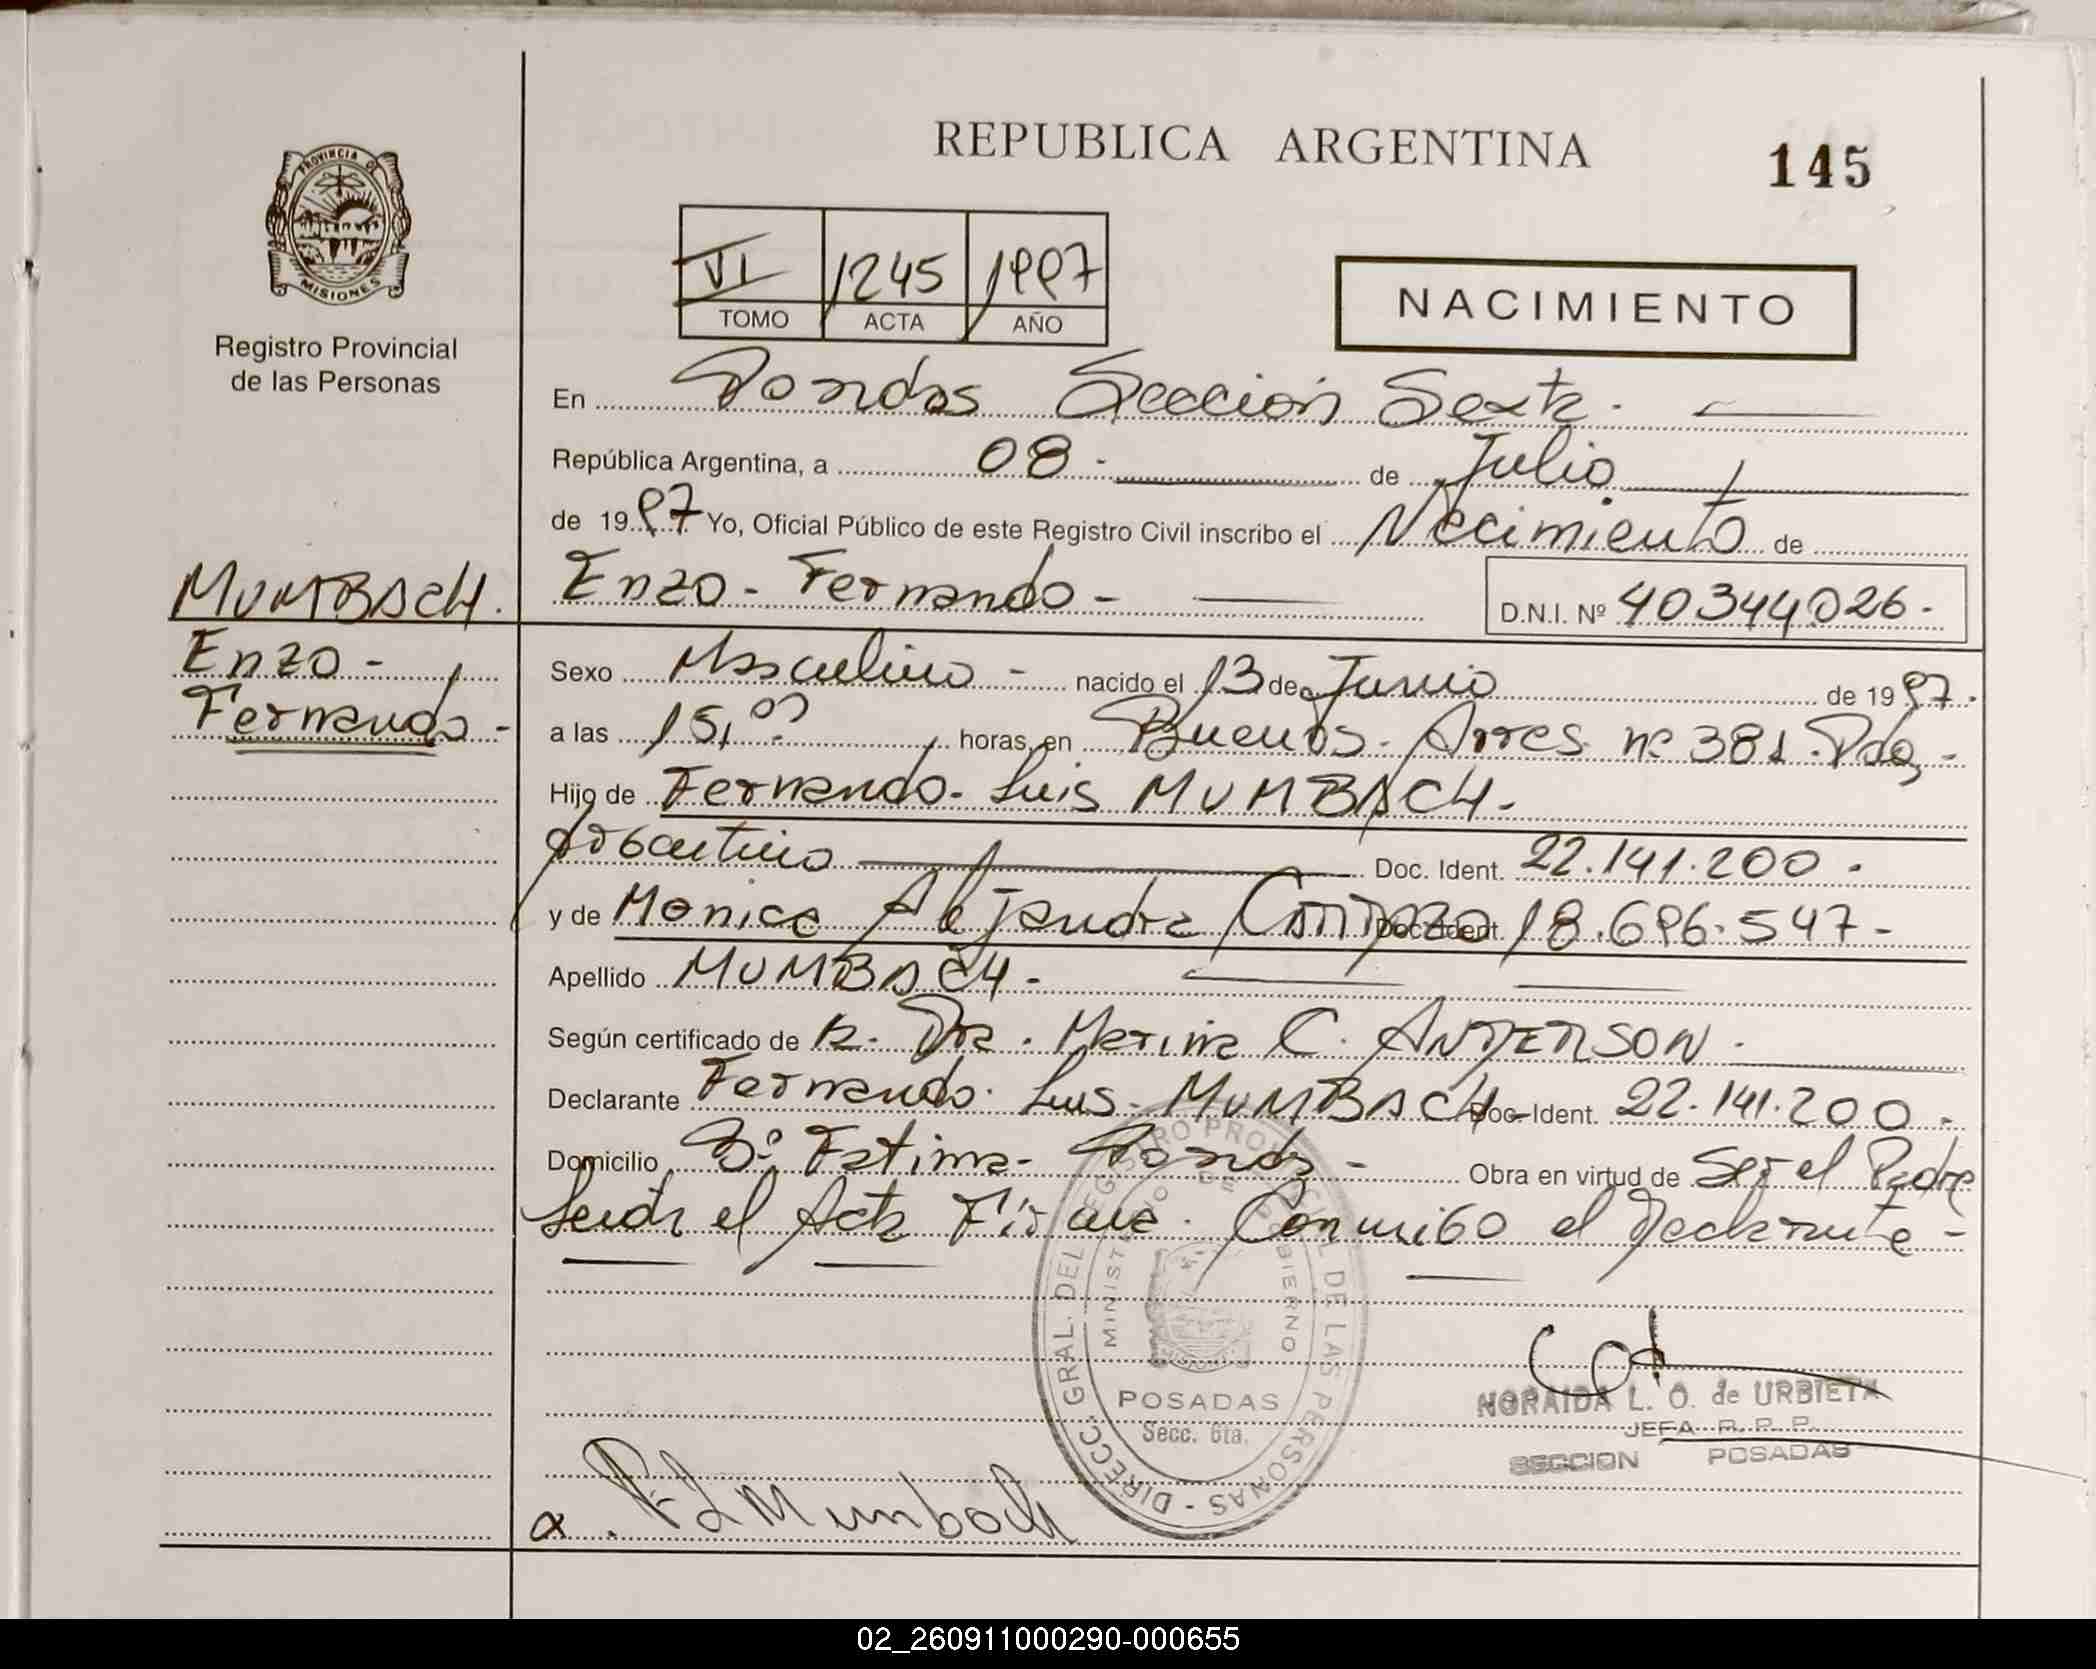 REPUBLICA ARGENTINA
145
PROVINCIA DE
MISIONES
Registro Provincial
de las Personas
VI 1245 1997
TOMO ACTA AÑO
NACIMIENTO
En Posadas Sección Sexta.
República Argentina, a 08. de Julio
de 1997 Yo, Oficial Público de este Registro Civil inscribo el Nacimiento de
MUMBACH. Enzo - Fernando - D.N.I. Nº 40344026.
Enzo - Sexo Masculino - nacido el 13 de Junio de 1997.
Fernando - a las 15,00 horas, en Buenos Aires nº 381. Pdas -
Hijo de Fernando Luis MUMBACH.
Argentino Doc. Ident. 22.141.200.
y de Monica Alejandra Doc. Ident. 18.696.547-
Apellido MUMBACH.
Según certificado de la Dra. Marina C. ANDERSON.
Declarante Fernando Luis MUMBACH Doc. Ident. 22.141.200.
Domicilio Bº Fatima - Posadas - Obra en virtud de Ser el Padre
Leída el Acta Firma Conmigo el Declarante -
DIRECC. GRAL. DEL REGISTRO PROVINCIAL DE LAS PERSONAS -
MINISTERIO DE GOBIERNO
POSADAS
Secc. 6ta.
NORAIDA L. O. de URBIETA
JEFA R. P. P.
SECCION POSADAS
F L Mumbach
02_260911000290-000655